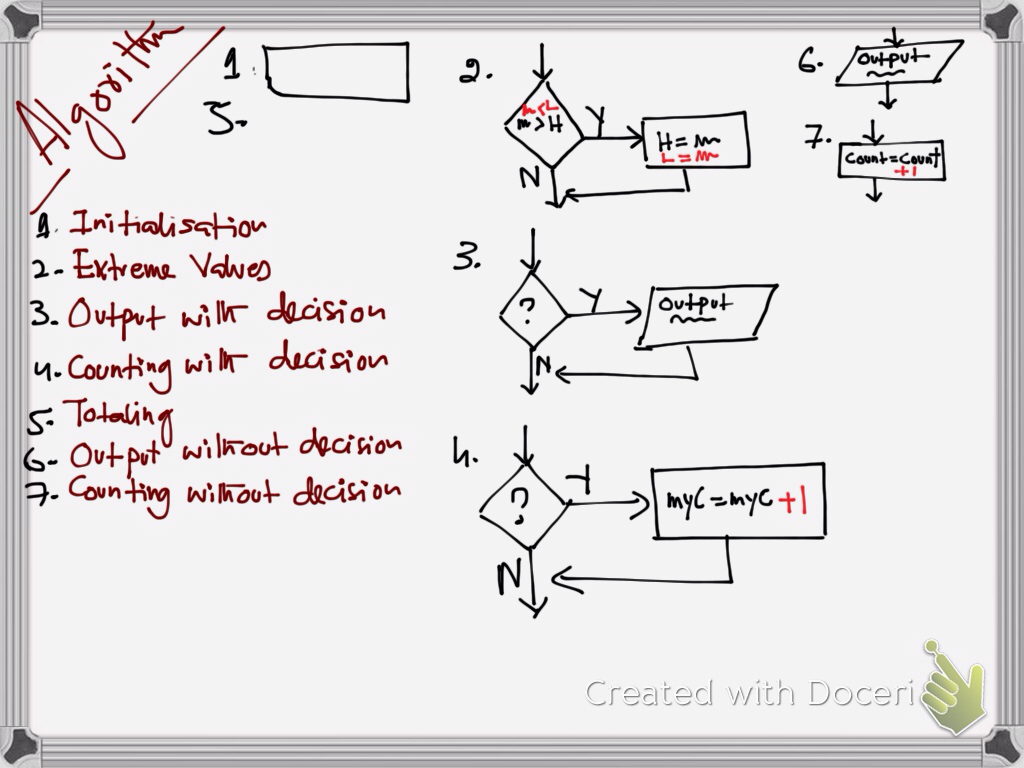 Algorithm
1.
5.
1. Initialisation
2. Extreme Values
3. Output with decision
4. Counting with decision
5. Totaling
6. Output without decision
7. Counting without decision
2.
m < L
m > H
Y
H = m
L = m
N
3.
?
Y
Output
N
4.
?
Y
myC = myC +1
N
6.
Output
7.
Count = Count
+1
Created with Doceri